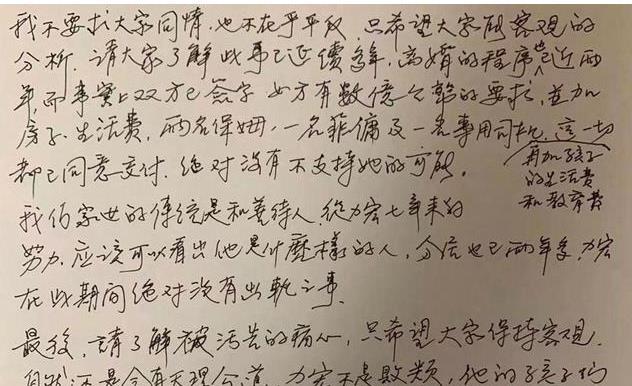 我不要求大家同情,也不在乎平反,只希望大家能客观的
分析.請大家了解此事已延續多年,离婚的程序也已近两
年,而事實上双方已簽字 女方有数億台幣的要求,並加
房子.生活費,两名保姆,一名菲傭及一名專用司机,這一切
都已同意交付.绝对沒有不支持她的可能.
再加孩子
的生活費
和教育費
我们家世的傳統是和善待人.從力宏七年来的
努力.应該可以看出他是什麼樣的人,分居也已两年多,力宏
在此期间绝对沒有出軌之事.
最後,請了解被污告的痛心,只希望大家保持客观.
还是会有天理公道,力宏不是敗類,他的孩子们